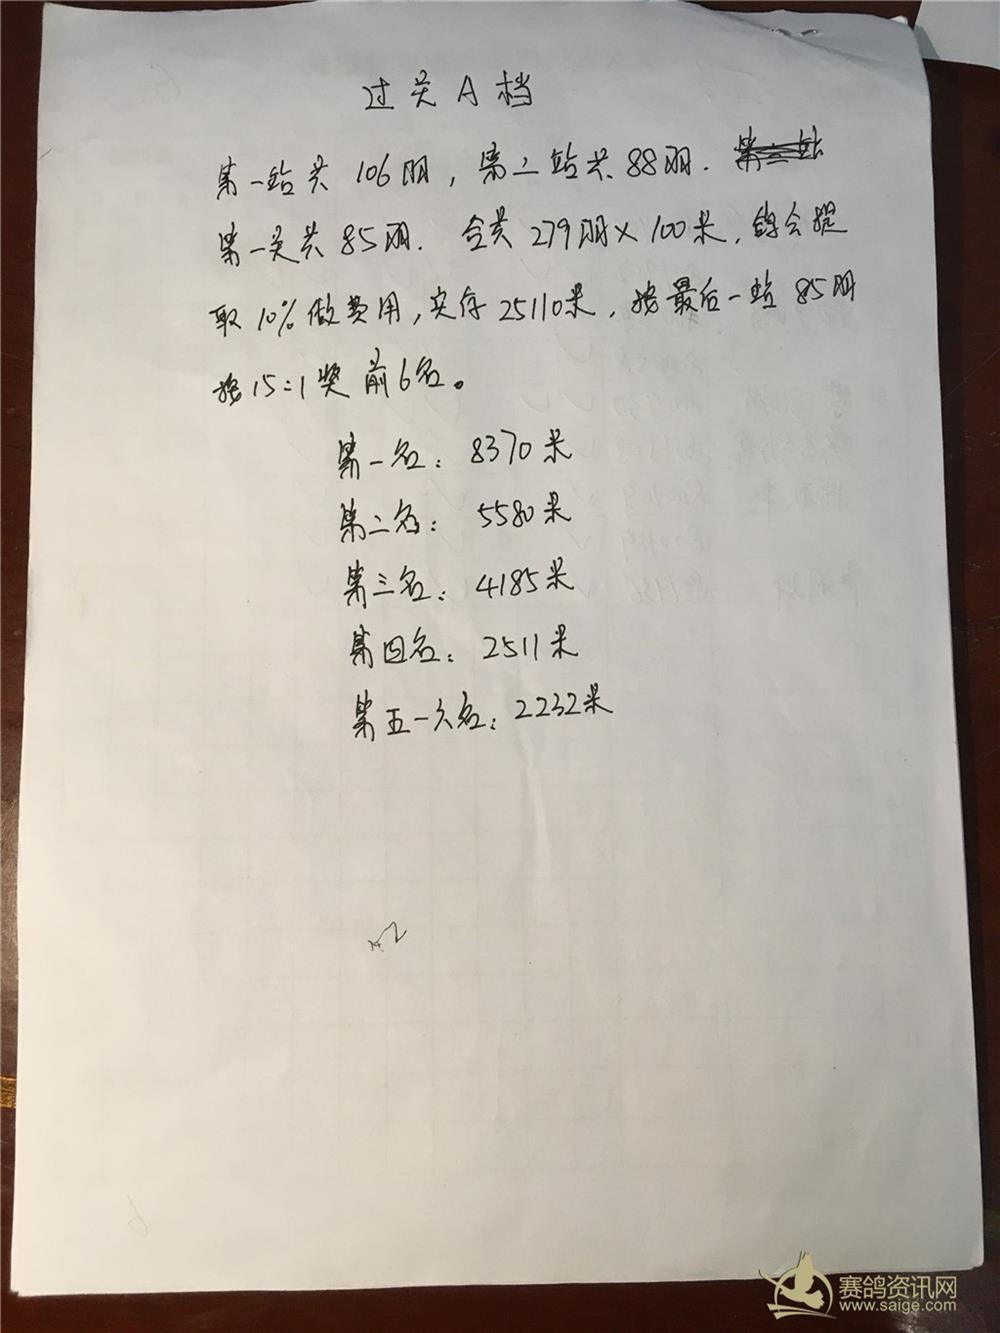 过关A档
第一站共106羽，第二站共88羽.
第一关共85羽. 合共279羽×100米，鸽会提
取10%做费用，实存25110米，按最后一站85羽
按15:1奖前6名。
第一名：8370米
第二名：5580米
第三名：4185米
第四名：2511米
第五一六名：2232米
赛鸽资讯网
www.saige.com